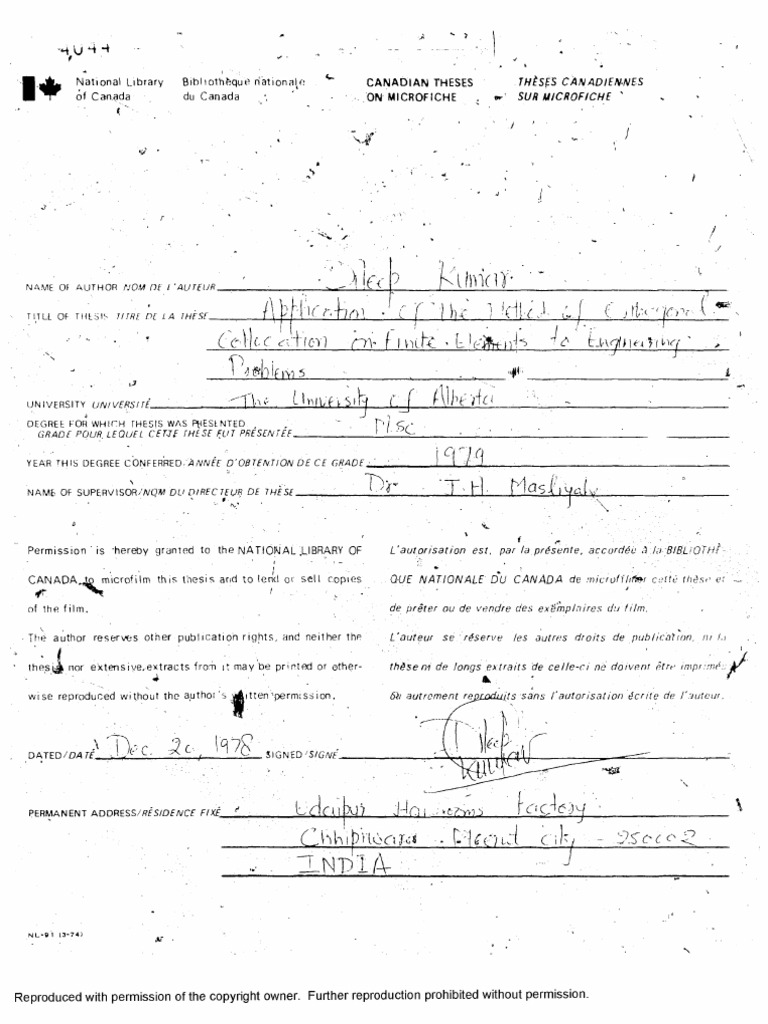 4044
National Library of Canada
Bibliothèque nationale du Canada
CANADIAN THESES ON MICROFICHE
THÈSES CANADIENNES SUR MICROFICHE
NAME OF AUTHOR/NOM DE L'AUTEUR Dileep Kumar
TITLE OF THESIS/TITRE DE LA THÈSE Application of the Method of Orthogonal
Collocation on Finite Elements to Engineering
Problems
UNIVERSITY/UNIVERSITÉ The University of Alberta
DEGREE FOR WHICH THESIS WAS PRESENTED/
GRADE POUR LEQUEL CETTE THÈSE FUT PRÉSENTÉE MSc
YEAR THIS DEGREE CONFERRED/ANNÉE D'OBTENTION DE CE GRADE 1979
NAME OF SUPERVISOR/NOM DU DIRECTEUR DE THÈSE Dr. J.H. Masliyah
Permission is hereby granted to the NATIONAL LIBRARY OF
CANADA to microfilm this thesis and to lend or sell copies
of the film.
The author reserves other publication rights, and neither the
thesis nor extensive extracts from it may be printed or other-
wise reproduced without the author's written permission.
L'autorisation est, par la présente, accordée à la BIBLIOTHÈ-
QUE NATIONALE DU CANADA de microfilmer cette thèse et
de prêter ou de vendre des exemplaires du film.
L'auteur se réserve les autres droits de publication, ni la
thèse ni de longs extraits de celle-ci ne doivent être imprimés
ou autrement reproduits sans l'autorisation écrite de l'auteur.
DATED/DATÉ Dec. 20, 1978 SIGNED/SIGNÉ Dileep Kumar
PERMANENT ADDRESS/RÉSIDENCE FIXE Udaipur Factory
Chhipiwara city - 250002
INDIA
NL-91 (3-74)
Reproduced with permission of the copyright owner. Further reproduction prohibited without permission.